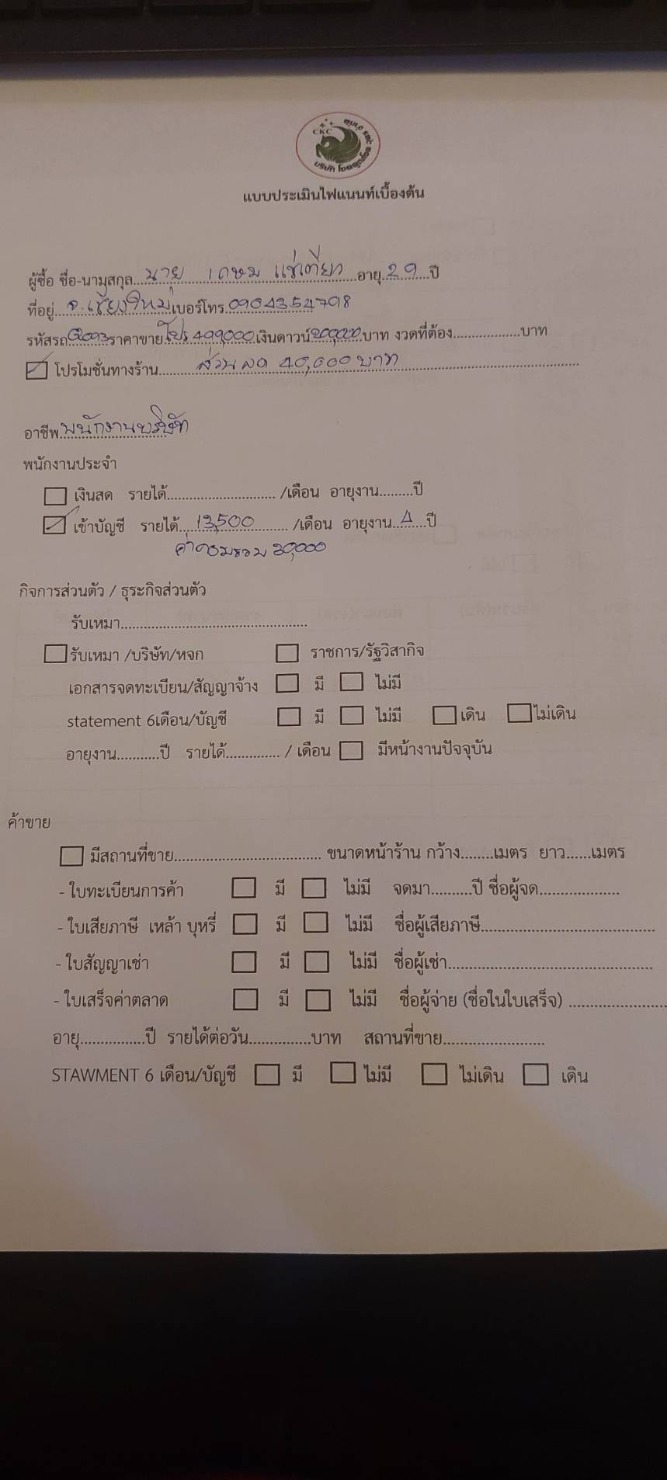 CKC
แบบประเมินไฟแนนท์เบื้องต้น
ผู้ซื้อ ชื่อ-นามสกุล...นาย เกษม แซ่เตียว...อายุ.29...ปี
ที่อยู่.จ.เชียงใหม่เบอร์โทร.0904354798
รหัสรถ ราคาขายโปร 499,000เงินดาวน์200,000บาท งวดที่ต้อง.................บาท
โปรโมชั่นทางร้าน.........ส่วนลด 40,000 บาท
อาชีพ.พนักงานบริษัท
พนักงานประจำ
เงินสด รายได้........................... /เดือน อายุงาน.........ปี
เข้าบัญชี รายได้....13,500........ /เดือน อายุงาน..4..ปี
ค่าคอมรวม 30,000
กิจการส่วนตัว / ธุระกิจส่วนตัว
รับเหมา..............................................
รับเหมา /บริษัท/หจก ราชการ/รัฐวิสากิจ
เอกสารจดทะเบียน/สัญญาจ้าง มี ไม่มี
statement 6เดือน/บัญชี มี ไม่มี เดิน ไม่เดิน
อายุงาน...........ปี รายได้.............. / เดือน มีหน้างานปัจจุบัน
ค้าขาย
มีสถานที่ขาย..................................... ขนาดหน้าร้าน กว้าง........เมตร ยาว......เมตร
- ใบทะเบียนการค้า มี ไม่มี จดมา..........ปี ชื่อผู้จด....................
- ใบเสียภาษี เหล้า บุหรี่ มี ไม่มี ชื่อผู้เสียภาษี...........................................
- ใบสัญญาเช่า มี ไม่มี ชื่อผู้เช่า...................................................
- ใบเสร็จค่าตลาด มี ไม่มี ชื่อผู้จ่าย (ชื่อในใบเสร็จ) ........................
อายุ................ปี รายได้ต่อวัน...............บาท สถานที่ขาย.........................
STAWMENT 6 เดือน/บัญชี มี ไม่มี ไม่เดิน เดิน